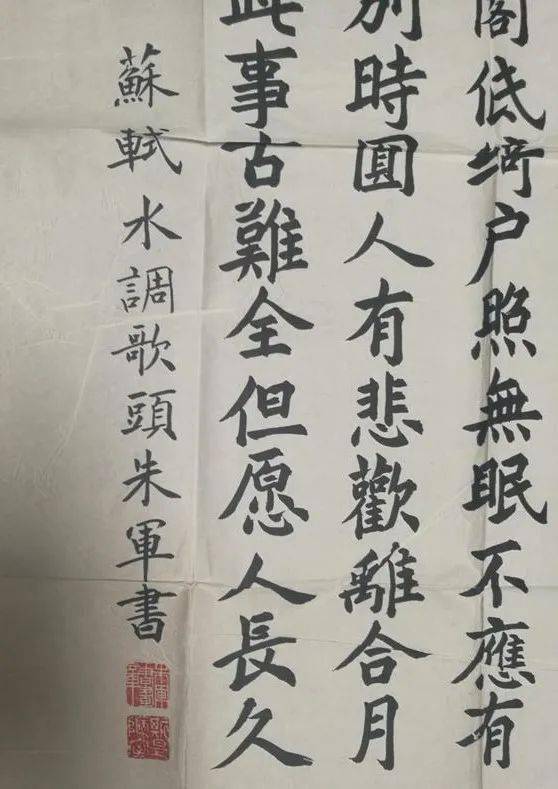 閣低綺户照無眠不應有
别時圓人有悲歡離合月
此事古難全但愿人長久
蘇軾水調歌頭朱軍書